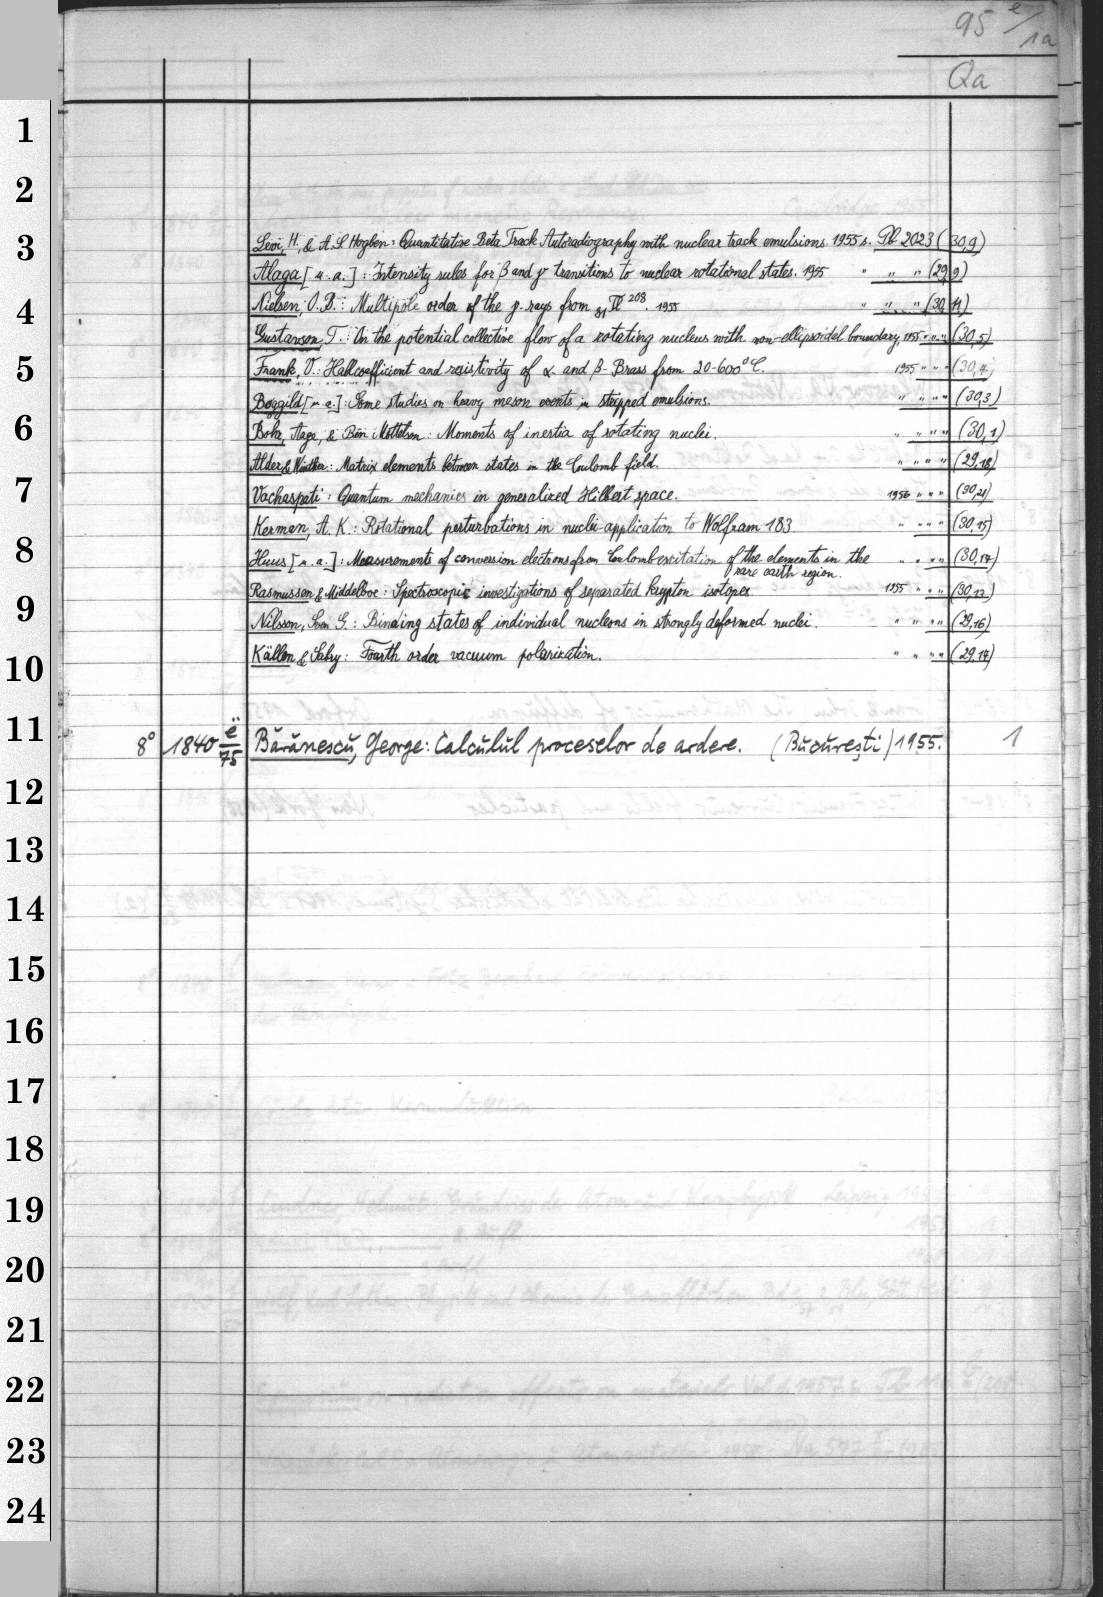 95 e/1a
Qa
1
2
3
Levi, H. & A. S. Hogben: Quantitative Beta Track Autoradiography with nuclear track emulsions. 1955 s. Pb 2023 (30,9)
Alaga [u. a.]: Intensity rules for β and γ transitions to nuclear rotational states. 1955 " " " (29,9)
4
Nielsen, O. B.: Multipole order of the γ-rays from 81Tl208. 1955 " " " (30,11)
Gustavson, T.: On the potential collective flow of a rotating nucleus with non-ellipsoidal boundary, 1955 " " " (30,5)
5
Frank, V.: Hallcoefficient and resistivity of α and β-Brass from 20-600°C. 1955 " " " (30,4)
Boggild [u. a.]: Some studies on heavy meson events in stopped emulsions. " " " " (30,3)
6
Bohr, Aage, & Ben Mottelson: Moments of inertia of rotating nuclei. " " " " (30,1)
Alder & Winther: Matrix elements between states in the Coulomb field. " " " " (29,18)
7
Vachaspati: Quantum mechanics in generalized Hilbert space. 1956 " " " (30,21)
Kerman, A. K.: Rotational perturbations in nuclei-application to Wolfram 183 " " " " (30,15)
8
Huus [u. a.]: Measurements of conversion electrons from Coulomb excitation of the elements in the " " " " (30,17)
rare earth region.
Rasmussen & Middelboe: Spectroscopic investigations of separated krypton isotopes 1955 " " " (30,13)
9
Nilsson, Sven G.: Binding states of individual nucleons in strongly deformed nuclei. " " " " (29,16)
10
Källen & Sabry: Fourth order vacuum polarization. " " " " (29,17)
11
8° 1840 ë/75 Bărănescu, George: Calculul proceselor de ardere. (București) 1955. 1
12
13
14
15
16
17
18
19
20
21
22
23
24